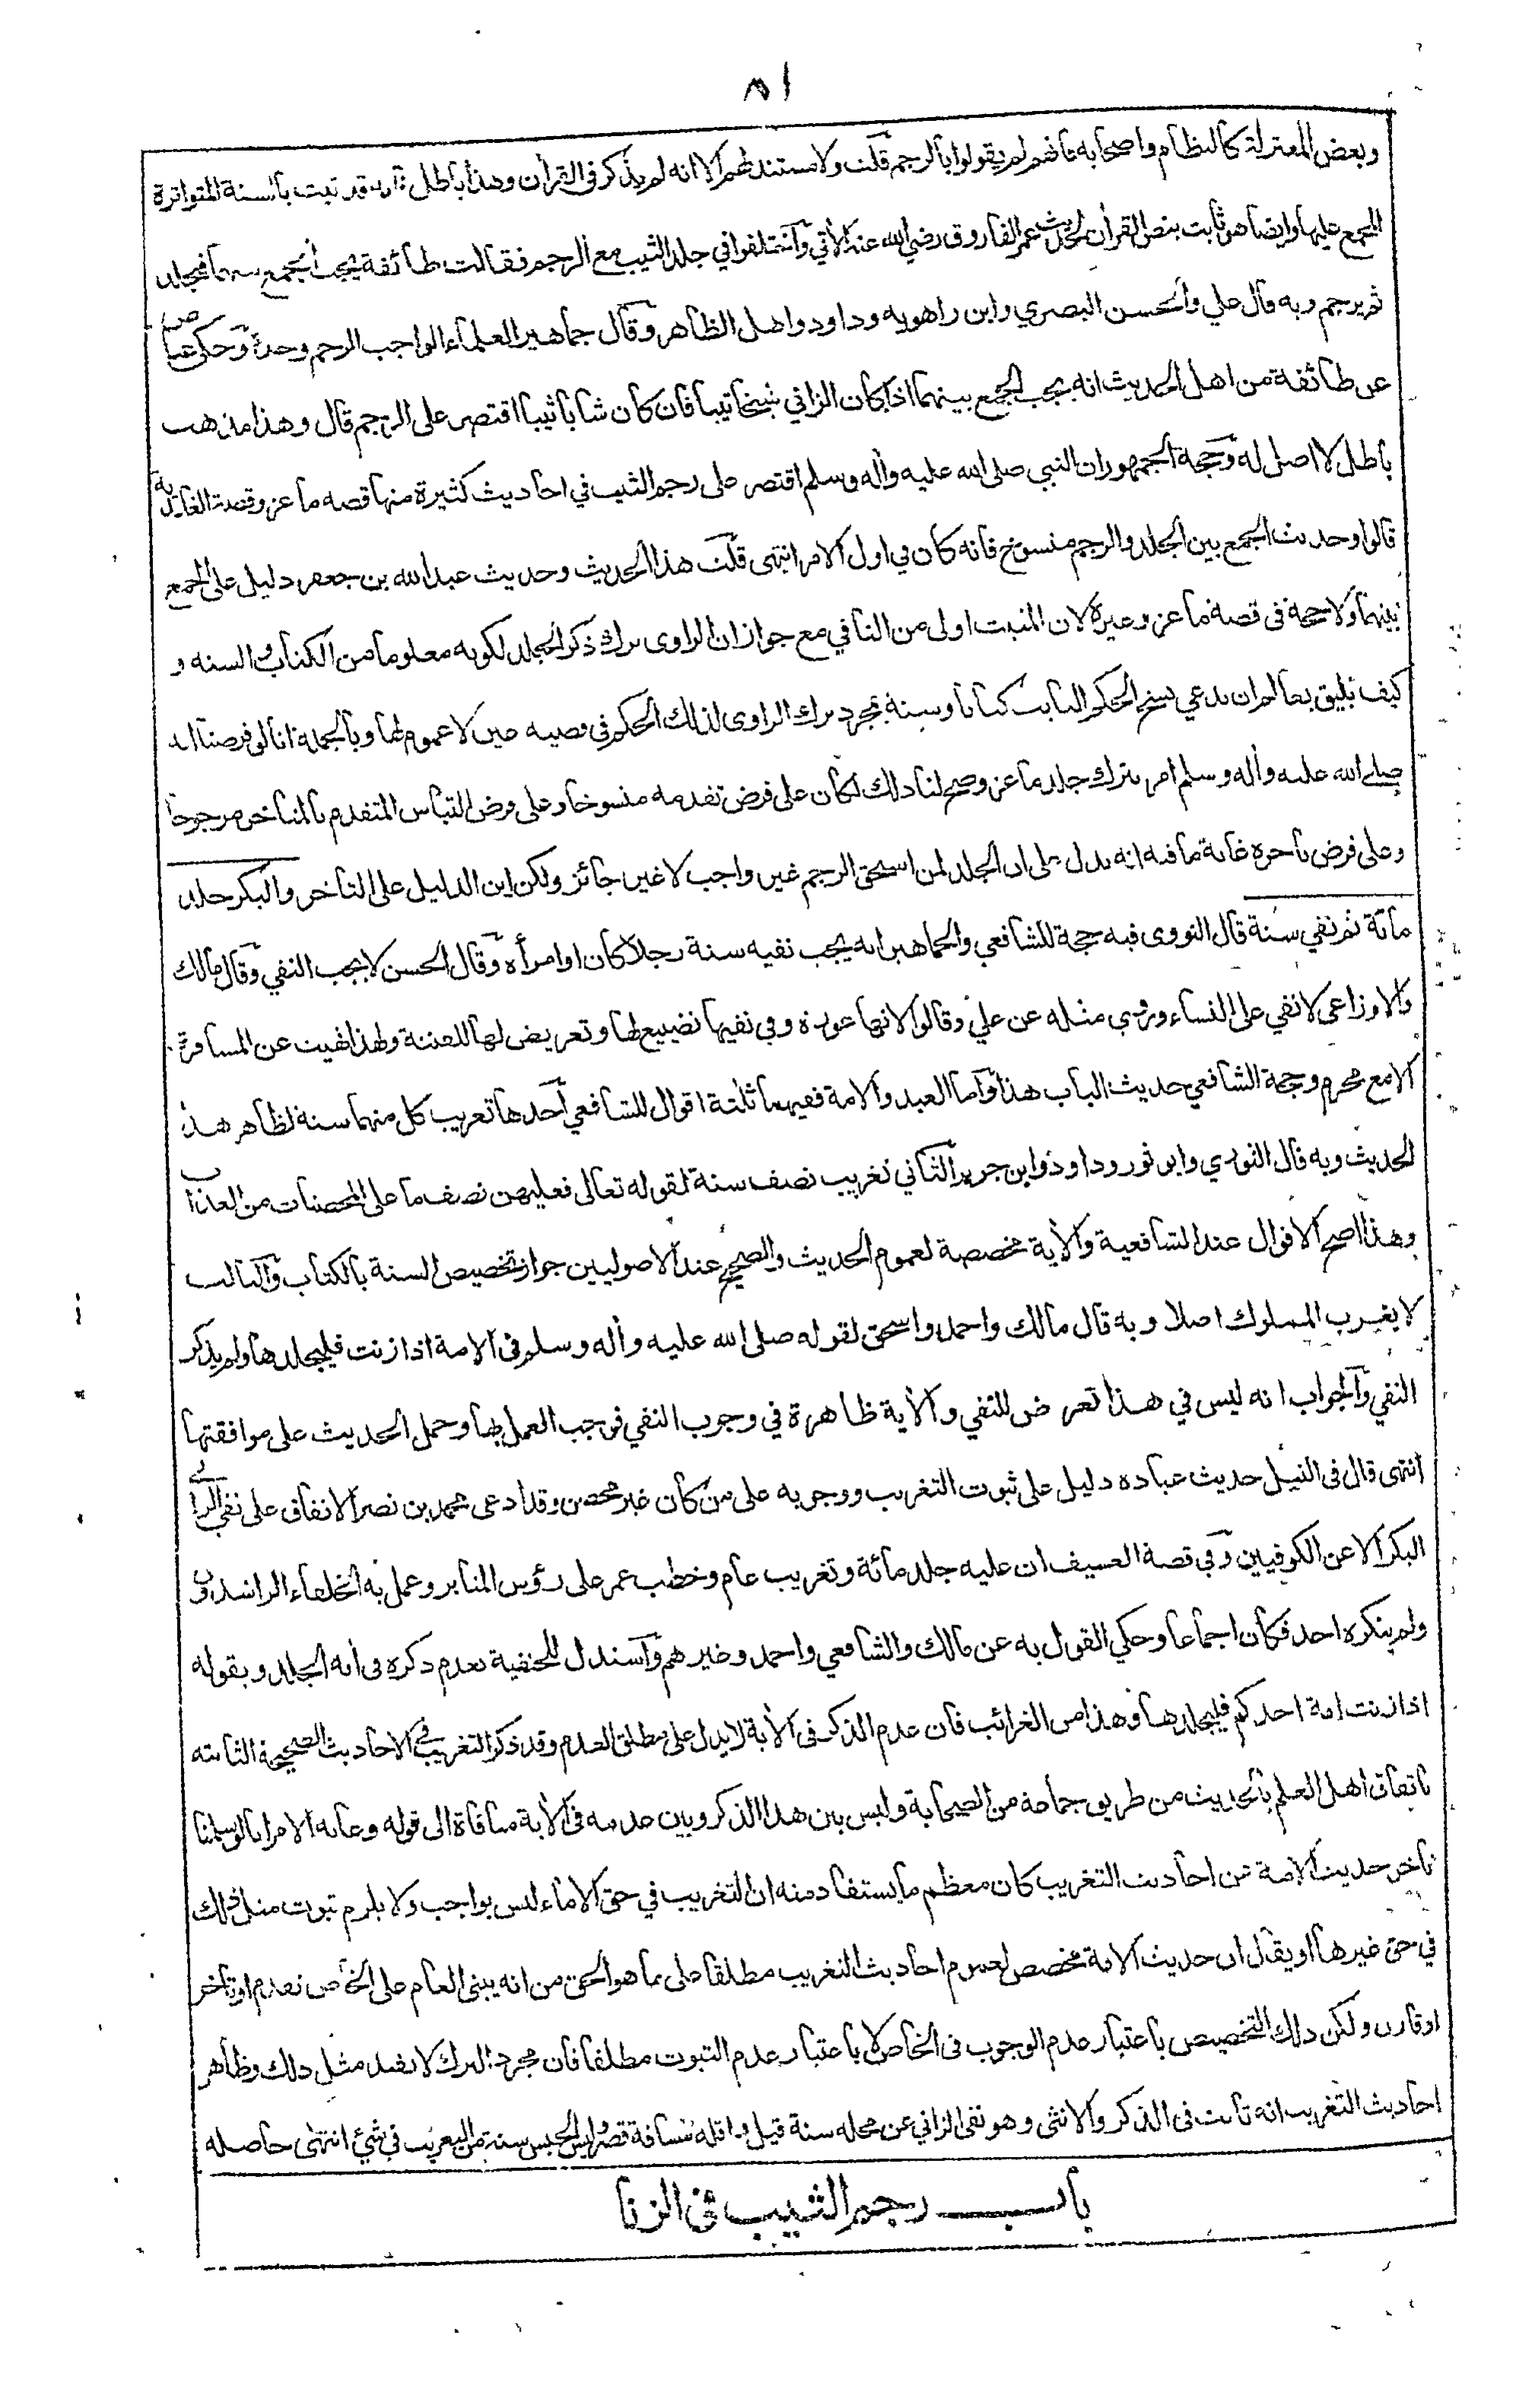 ٨١
وبعض المعتزلة كالنظام واصحابه فانهم لم يقولوا بالرجم قلت ولا مستند لهم الا انه لم يذكر في القرأن وهذا باطل فانه قد ثبت بالسنة المتواترة
المجمع عليها وايضا هو ثابت بنص القرأن لحديث عمر الفاروق رضي الله عنه الأتي واختلفوا في جلد الثيب مع الرجم فقالت طائفة يجب الجمع بينهما فيجلد
ثم يرجم وبه قال علي والحسن البصري وابن راهويه وداود واهل الظاهر وقال جماهير العلماء الواجب الرجم وحده وحكى عياض
عن طائفة من اهل الحديث انه يجب الجمع بينهما اذا كان الزاني شيخا ثيبا فان كان شابا ثيبا اقتصر على الرجم قال وهذا مذهب
باطل لا اصل له وحجة الجمهور ان النبي صلى الله عليه وأله وسلم اقتصر على رجم الثيب في احاديث كثيرة منها قصه ماعز وقصة الغامدية
قالوا وحديث الجمع بين الجلد والرجم منسوخ فانه كان في اول الامر انتهى قلت هذا الحديث وحديث عبد الله بن جعفر دليل على الجمع
بينهما ولا حجة فى قصة ماعز وغيره لان المثبت اولى من النافي مع جواز ان الراوى ترك ذكر الجلد لكونه معلوما من الكتاب والسنه و
كيف يليق بعالم ان يدعي نسخ الحكم الثابت كتابا وسنة بمجرد ترك الراوى لذلك الحكم فى قصيه عين لا عموم لها وبالجملة انا لو فرضنا انه
صلى الله عليه وأله وسلم امر بترك جلد ماعز وصح لنا ذلك لكان على فرض تقدمه منسوخا وعلى فرض التباس المتقدم بالمتاخر مرجوحا
وعلى فرض تاخره غاية ما فيه انه يدل على ان الجلد لمن استحق الرجم غير واجب لا غير جائز ولكن اين الدليل على التاخر والبكر جلد
مائة ثم نفي سنة قال النووى فيه حجة للشافعي والجماهير انه يجب نفيه سنة رجلا كان او امرأه وقال الحسن لا يجب النفي وقال مالك
والاوزاعى لا نفي على النساء وروي مثله عن علي وقالوا لانها عورة وفي نفيها تضييع لها وتعريض لها للفتنة ولهذا نهيت عن المسافرة
الا مع محرم وحجة الشافعي حديث الباب هذا واما العبد والامة ففيهما ثلثة اقوال للشافعي احدها تغريب كل منهما سنة لظاهر هذا
الحديث وبه قال الثوري وابو ثور وداود وابن جرير الثاني تغريب نصف سنة لقوله تعالى فعليهن نصف ما على المحصنات من العذاب
وهذا اصح الاقوال عند الشافعية والأية مخصصة لعموم الحديث والصحيح عند الاصوليين جواز تخصيص السنة بالكتاب والثالث
لا يغرب المملوك اصلا وبه قال مالك واحمد واسحق لقوله صلى الله عليه وأله وسلم فى الامة اذا زنت فليجلدها ولم يذكر
النفي والجواب انه ليس في هذا تعرض للنفي والأية ظاهرة في وجوب النفي فوجب العمل بها وحمل الحديث على موافقتها
انتهى قال فى النيل حديث عباده دليل على ثبوت التغريب ووجوبه على من كان غير محصن وقد ادعى محمد بن نصر الاتفاق على نفي الزاني
البكر الا عن الكوفيين وفي قصة العسيف ان عليه جلد مائة وتغريب عام وخطب عمر على رؤس المنابر وعمل به الخلفاء الراشدون
ولم ينكره احد فكان اجماعا وحكي القول به عن مالك والشافعي واحمد وغيرهم واستدل للحنفية بعدم ذكره في أية الجلد وبقوله
اذا زنت امة احدكم فليجلدها وهذا من الغرائب فان عدم الذكر فى الأية لا يدل على مطلق العدم وقد ذكر التغريب في الاحاديث الصحيحة الثابته
باتفاق اهل العلم بالحديث من طريق جماعة من الصحابة وليس بين هذا الذكر وبين عدمه فى الأية منافاة الى قوله وغاية الامر انا لو سلمنا
تاخر حديث الامة عن احاديث التغريب كان معظم ما يستفاد منه ان التغريب في حق الاماء ليس بواجب ولا يلزم ثبوت مثل ذلك
في حق غيرها او يقال ان حديث الامة مخصص لعموم احاديث التغريب مطلقا على ما هو الحق من انه يبنى العام على الخاص تقدم او تاخر
او قارن ولكن ذلك التخصيص باعتبار عدم الوجوب فى الخاص لا باعتبار عدم الثبوت مطلقا فان مجرد الترك لا يفيد مثل ذلك وظاهر
احاديث التغريب انه ثابت فى الذكر والانثى وهو نفي الزاني عن محله سنة قيل واقله مسافة قصر وليس الحبس سنة من التغريب في شيئ انتهى حاصله
باب رجم الثيب فى الزنا